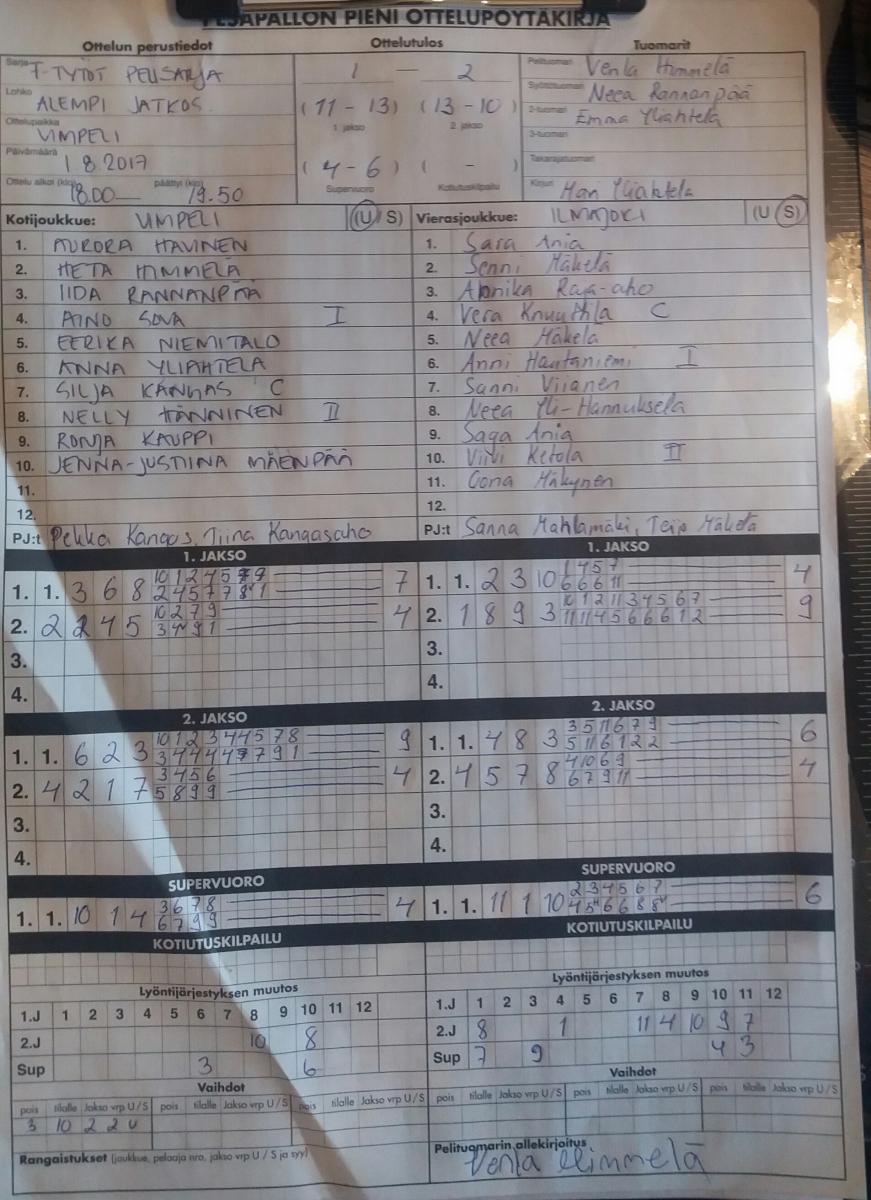 PESÄPALLON PIENI OTTELUPÖYTÄKIRJA
Ottelun perustiedot
Ottelutulos
Tuomarit
Sarja F-TYTÖT PELISARJA
Lohko ALEMPI JATKOS.
Ottelupaikka VIMPELI
Päivämäärä 1 8 2017
Ottelu alkoi (klo) 18.00 päättyi (klo) 19.50
1 — 2
(11 - 13) (13 - 10)
1. jakso 2. jakso
(4 - 6) ( - )
Supervuoro Kotiutuskilpailu
Pelituomari Venla Himmelä
Syöttötuomari Neea Rannanpää
2-tuomari Emma Yliahtela
3-tuomari
Takarajatuomari
Kirjuri Han Yliahtela
Kotijoukkue: VIMPELI (U/S)
1. AURORA HAVINEN
2. HETA HIMMELÄ
3. IIDA RANNANPÄÄ
4. AINO SOVA I
5. EERIKA NIEMITALO
6. ANNA YLIAHTELA
7. SILJA KANGAS C
8. NELLY HÄNNINEN II
9. RONJA KAUPPI
10. JENNA-JUSTIINA MÄENPÄÄ
11.
12.
PJ:t Pekka Kangas, Tiina Kangasaho
Vierasjoukkue: ILMAJOKI (U S)
1. Sara Ania
2. Senni Mäkelä
3. Annika Raja-aho
4. Vera Knuuttila C
5. Neea Mäkelä
6. Anni Hautaniemi I
7. Sanni Viianen
8. Neea Yli-Hannuksela
9. Saga Ania
10. Viivi Ketola II
11. Oona Mäkynen
12.
PJ:t Sanna Mahlamäki, Teija Mäkelä
1. JAKSO
1. 1. 3 6 8 10 1 2 4 5 7 9
2 4 5 7 7 8 1 7
2. 2 2 4 5 10 2 7 9
3 4 9 1 4
3.
4.
1. JAKSO
1. 1. 2 3 10 1 4 5 7
6 6 6 11 4
2. 1 8 9 3 10 1 2 11 3 4 5 6 7
11 11 4 5 6 6 6 1 2 9
3.
4.
2. JAKSO
1. 1. 6 2 3 10 1 2 3 4 4 5 7 8
3 4 4 4 4 7 7 9 1 9
2. 4 2 1 7 3 4 5 6
5 8 9 9 4
3.
4.
2. JAKSO
1. 1. 4 8 3 3 5 11 6 7 9
5 11 6 1 2 2 6
2. 4 5 7 8 4 10 6 9
6 7 9 11 4
3.
4.
SUPERVUORO
1. 1. 10 1 4 3 6 7 8
6 7 9 9 4
SUPERVUORO
1. 1. 11 1 10 2 3 4 5 6 7
4 5 6 6 8 8 6
KOTIUTUSKILPAILU
KOTIUTUSKILPAILU
Lyöntijärjestyksen muutos
1.J 1 2 3 4 5 6 7 8 9 10 11 12
2.J 10 8
Sup 3 6
Lyöntijärjestyksen muutos
1.J 1 2 3 4 5 6 7 8 9 10 11 12
2.J 8 1 11 4 10 9 7
Sup 7 9 4 3
Vaihdot
pois tilalle Jakso vrp U/S pois tilalle Jakso vrp U/S pois tilalle Jakso vrp U/S
3 10 2 2 U
Vaihdot
pois tilalle Jakso vrp U/S pois tilalle Jakso vrp U/S pois tilalle Jakso vrp U/S
Rangaistukset (joukkue, pelaaja nro, jakso vrp U/S ja syy)
Pelituomarin allekirjoitus
Venla Himmelä